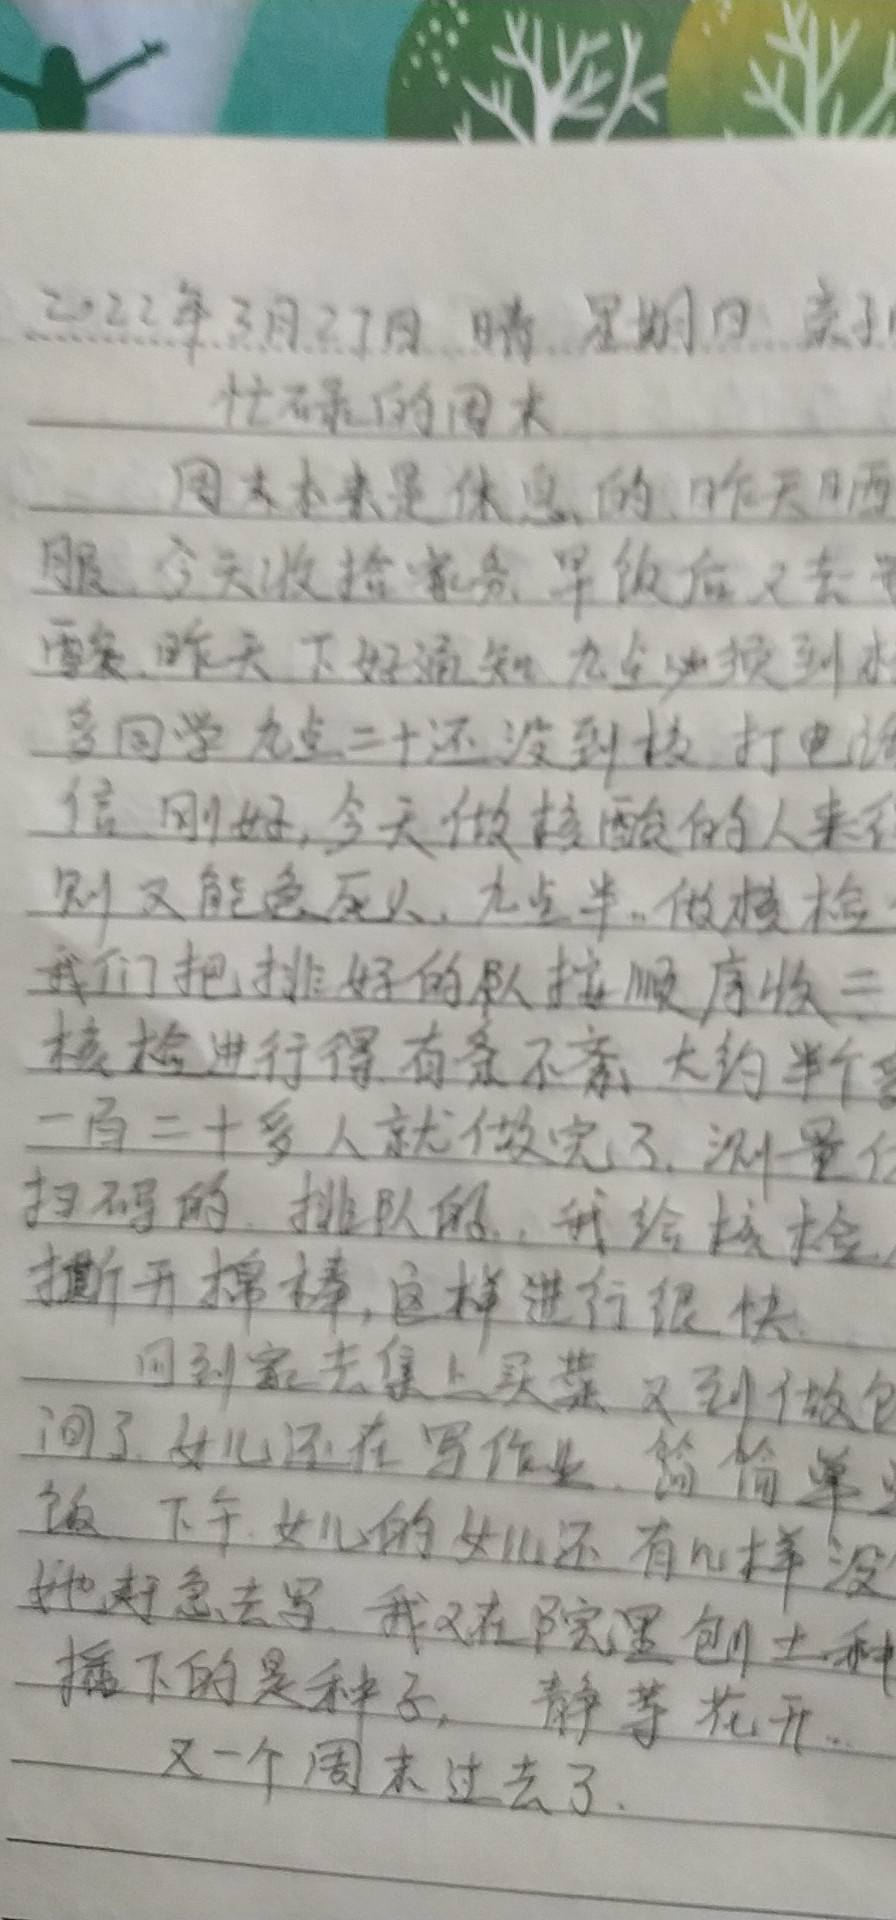 2022年3月27日 晴 星期日 亲子
忙碌的周末
周末本来是休息的,昨天晒
服,今天收拾家务,早饭后又去
酸,昨天下好通知,九点必须到
多同学九点二十还没到校,打电话
信,刚好,今天做核酸的人来
则又能急死人,九点半,做核检
我们把排好的队按顺序收三
核检进行得有条不紊,大约半个
一百二十多人就做完了,测量
扫码的,排队的,我给核检
撕开棉棒,这样进行很快.
回到家去集上买菜,又到做
间了,女儿还在写作业,简简单
饭,下午,女儿的女儿还有几样没
她赶急去写,我又在院里刨土种
播下的是种子, 静等花开..
又一个周末过去了.